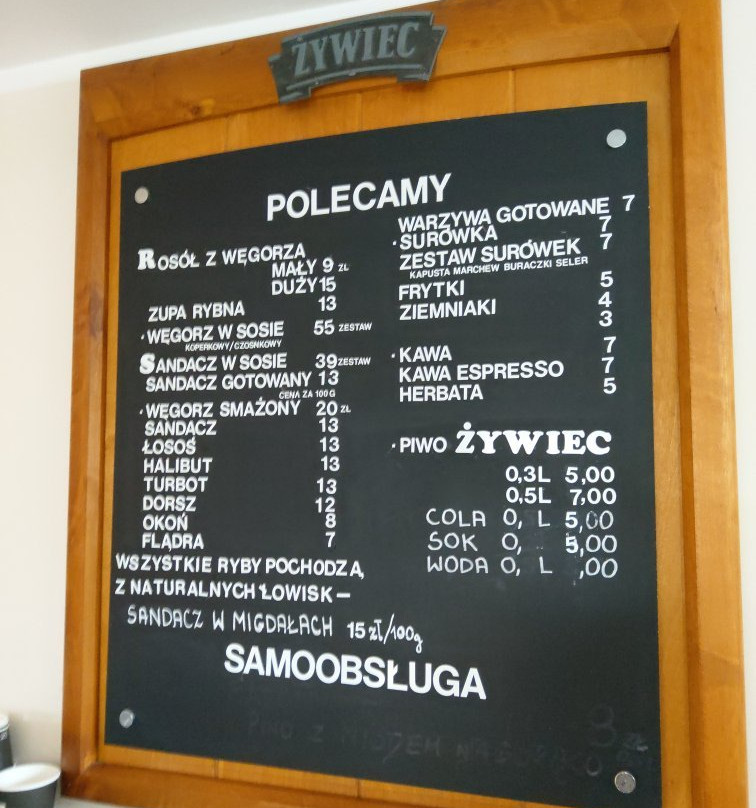 ŻYWIEC
POLECAMY
ROSÓŁ Z WĘGORZA
MAŁY 9 ZŁ
DUŻY 15
ZUPA RYBNA 13
·WĘGORZ W SOSIE 55 ZESTAW
KOPERKOWY/CZOSNKOWY
SANDACZ W SOSIE 39 ZESTAW
SANDACZ GOTOWANY 13
CENA ZA 100G
·WĘGORZ SMAŻONY 20 ZŁ
SANDACZ 13
ŁOSOŚ 13
HALIBUT 13
TURBOT 13
DORSZ 12
OKOŃ 8
FLĄDRA 7
WSZYSTKIE RYBY POCHODZĄ,
Z NATURALNYCH ŁOWISK –
SANDACZ W MIGDAŁACH 15 zł/100g
WARZYWA GOTOWANE 7
·SURÓWKA 7
ZESTAW SURÓWEK 7
KAPUSTA MARCHEW BURACZKI SELER
FRYTKI 5
ZIEMNIAKI 4
3
·KAWA 7
KAWA ESPRESSO 7
HERBATA 5
·PIWO ŻYWIEC
0,3L 5,00
0,5L 7,00
COLA 0, L 5,00
SOK 0, 5,00
WODA 0, L ,00
SAMOOBSŁUGA